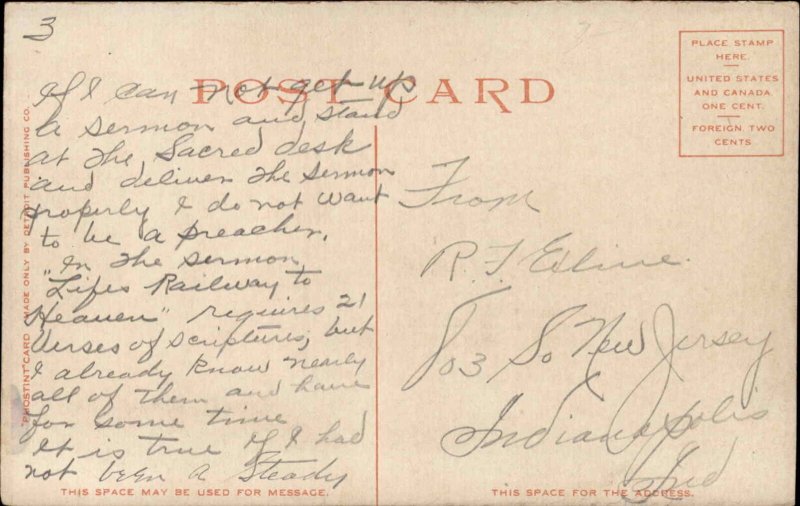 3
POST CARD
PLACE STAMP
HERE.
UNITED STATES
AND CANADA
ONE CENT.
FOREIGN, TWO
CENTS
"PHOSTINT" CARD (MADE ONLY BY DETROIT PUBLISHING CO.
If I can not get up
a sermon and stand
at the Sacred desk
and deliver the sermon
properly I do not want
to be a preacher.
In the sermon
"Lifes Railway to
Heaven" requires 21
Verses of scriptures, but
I already know nearly
all of them and have
for some time
It is true if I had
not been a steady
From
R. F. Eline.
803 So New Jersey
Indianapolis
Ind
THIS SPACE MAY BE USED FOR MESSAGE.
THIS SPACE FOR THE ADDRESS.